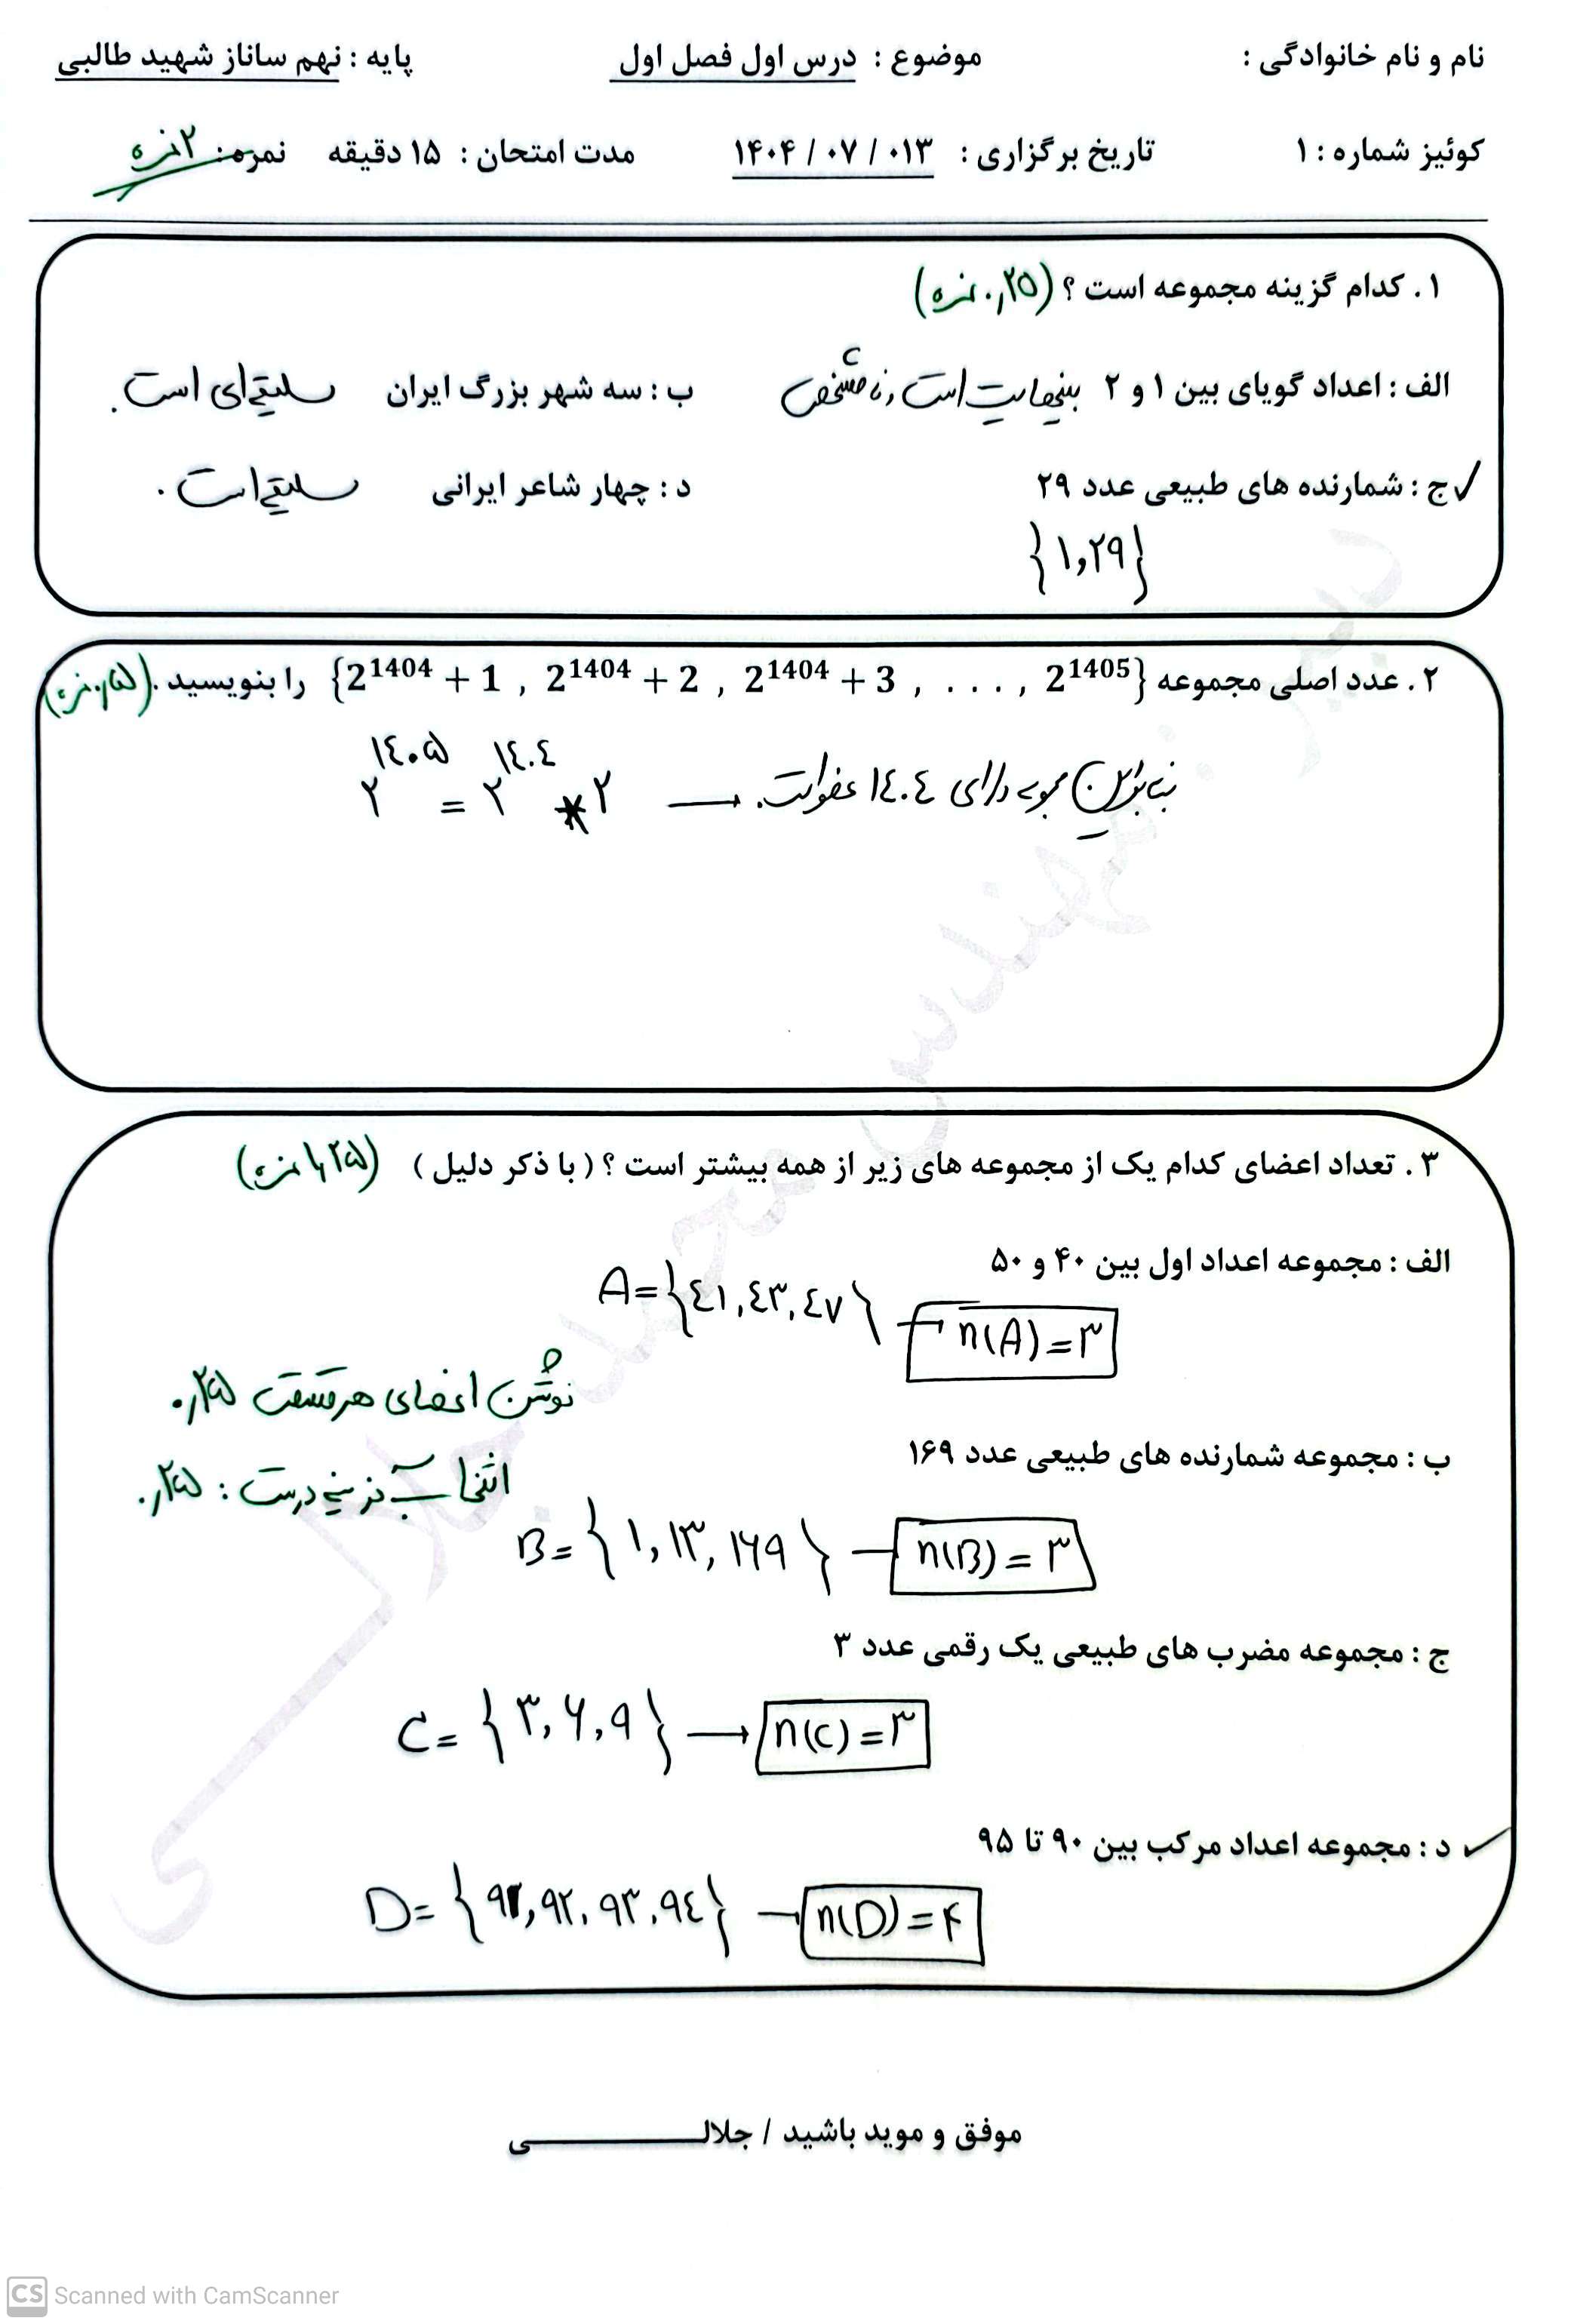 نام و نام خانوادگی :    موضوع : درس اول فصل اول    پایه : نهم ساناز شهید طالبی
کوئیز شماره : ۱    تاریخ برگزاری : ۱۴۰۴ / ۰۷ / ۰۱۳    مدت امتحان : ۱۵ دقیقه    نمره: ۲ نمره
۱. کدام گزینه مجموعه است ؟ (۰٫۲۵ نمره)
الف : اعداد گویای بین ۱ و ۲ بینهایت است و نامشخص    ب : سه شهر بزرگ ایران سلیقه‌ای است.
✓ ج : شمارنده های طبیعی عدد ۲۹    د : چهار شاعر ایرانی سلیقه‌ است .
{۱,۲۹}
۲. عدد اصلی مجموعه {2^1404 + 1 , 2^1404 + 2 , 2^1404 + 3 , . . . , 2^1405} را بنویسید . (۰٫۵ نمره)
۲^۱٤۰۵ = ۲^۱٤۰٤ * ۲ → بنابراین مجموعه دارای ۱٤۰٤ عضو است.
۳. تعداد اعضای کدام یک از مجموعه های زیر از همه بیشتر است ؟ ( با ذکر دلیل ) (۱٫۲۵ نمره)
الف : مجموعه اعداد اول بین ۴۰ و ۵۰
A={٤۱,٤۳,٤۷} → n(A)=۳
نوشتن اعضای هر قسمت ۰٫۲۵
ب : مجموعه شمارنده های طبیعی عدد ۱۶۹
انتخاب گزینه درست : ۰٫۲۵
B={۱,۱۳,۱۶۹} → n(B)=۳
ج : مجموعه مضرب های طبیعی یک رقمی عدد ۳
C={۳,۶,۹} → n(C)=۳
✓ د : مجموعه اعداد مرکب بین ۹۰ تا ۹۵
D={۹۱,۹۲,۹۳,۹٤} → n(D)=۴
موفق و موید باشید / جلالــــــــــی
دبیر : مهندس محمد جلالی
CS Scanned with CamScanner